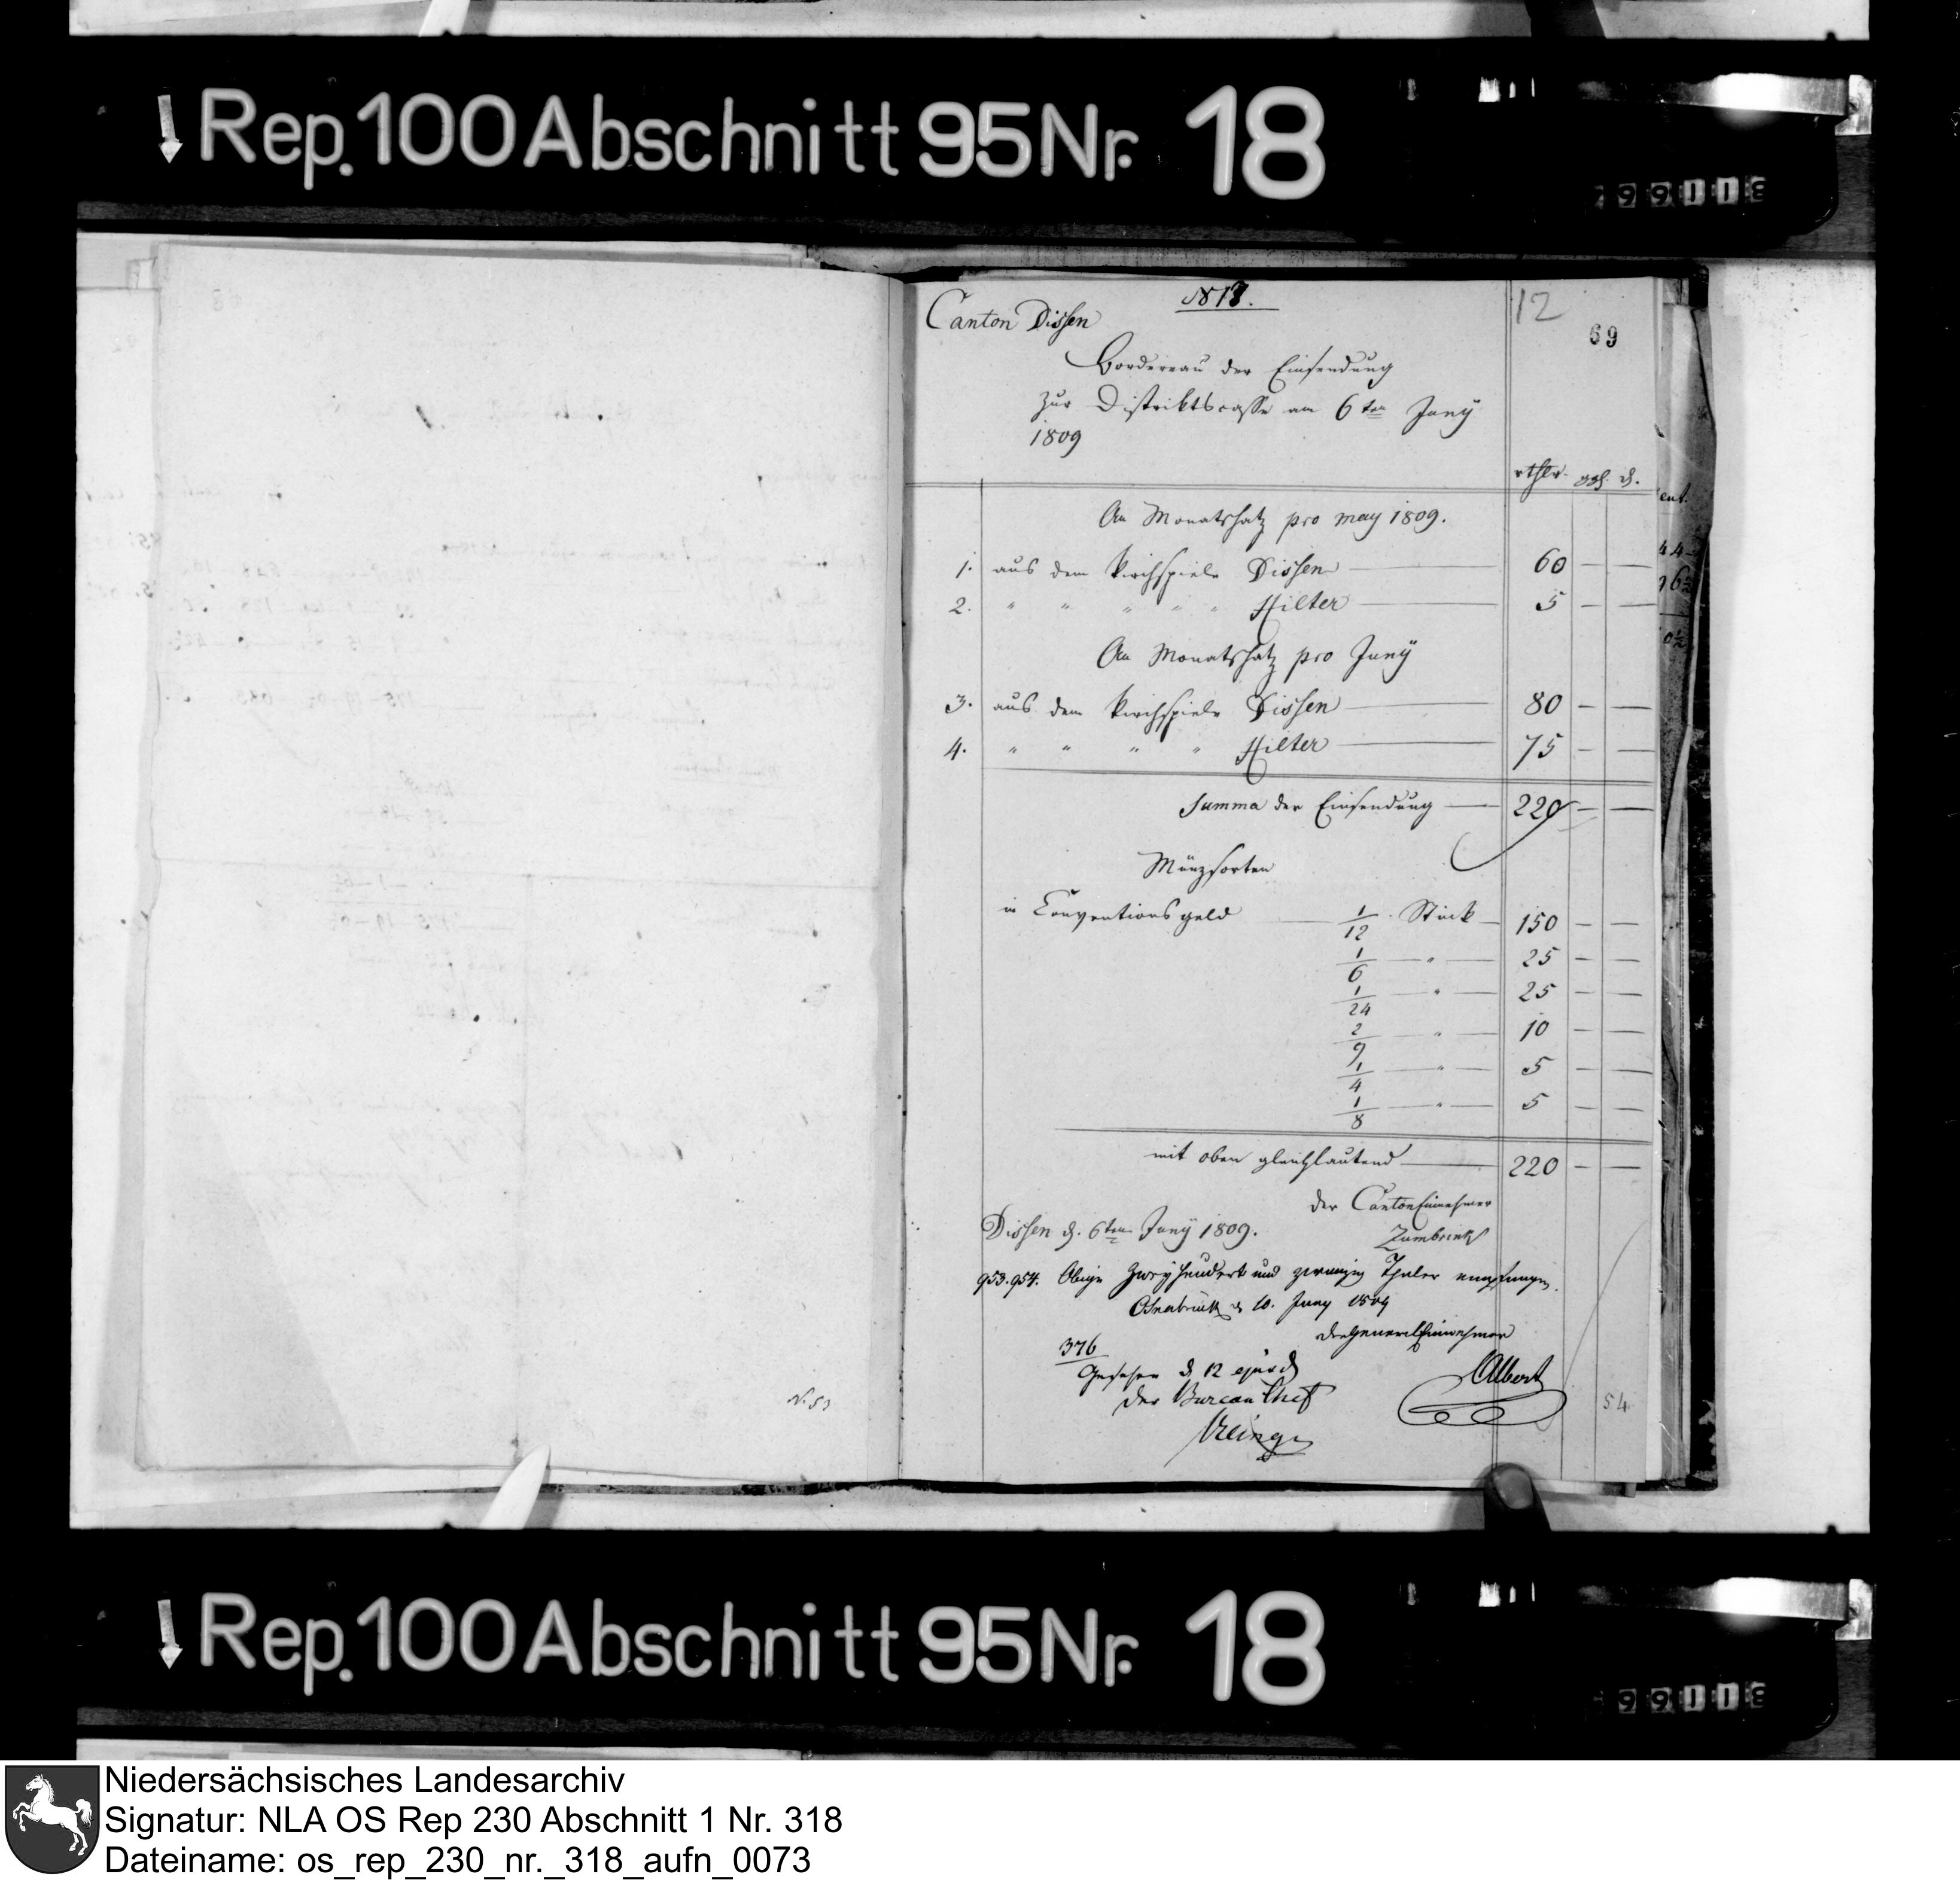 Rep. 100 Abschnitt 95 Nr. 18
99118
12
69
Canton Dissen
Bordereau der Einsendung
zur Distriktscasse am 6ten Juny
1809
rthlr. ggl. d.
An Monatssatz pro may 1809.
1. aus dem Kirchspiele Dissen — 60 — —
2. " " " " " Hilter — 5 — —
An Monatssatz pro Juny
3. aus dem Kirchspiele Dissen — 80 — —
4. " " " " Hilter — 75 — —
Summa der Einsendung — 220 — —
Münzsorten
in Conventionsgeld — 1/12 Stück — 150 — —
1/6 — " — 25 — —
1/24 — " — 25 — —
2/9 — " — 10 — —
1/4 — " — 5 — —
1/8 — " — 5 — —
mit oben gleichlautend — 220 — —
der Canton Einnehmer
Dissen d. 6ten Juny 1809.
Zumbrink
953.954. Obige Zweyhundert und zwanzig Thaler empfangen.
Osnabrück d 10. Juny 1809
der General Einnehmer
376
Gesehen d 12 ejusd
Albert
der Bureau Chef
54
N. 53
Rep. 100 Abschnitt 95 Nr. 18
99118
Niedersächsisches Landesarchiv
Signatur: NLA OS Rep 230 Abschnitt 1 Nr. 318
Dateiname: os_rep_230_nr._318_aufn_0073